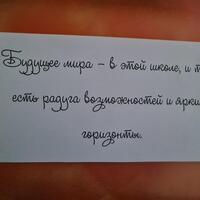 Будущее мира – в этой школе, и т
есть радуга возможностей и ярки
горизонты.